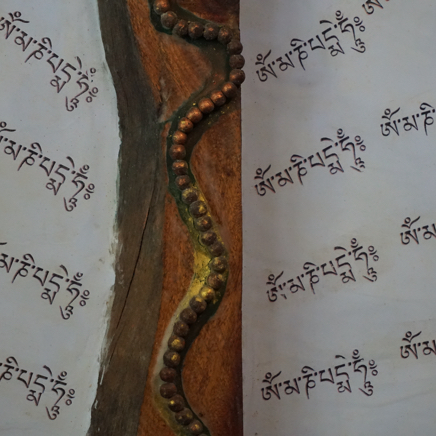 ཨོཾ་མ་ཎི་པདྨེ་ཧཱུྃ༔
ཨོཾ་མ་ཎི་པདྨེ་ཧཱུྃ༔
མ་ཎི་པདྨེ་ཧཱུྃ༔
ཨོཾ་མ་ཎི་པདྨེ་ཧཱུྃ༔
ཨོཾ་མ་
མ་ཎི་པདྨེ་ཧཱུྃ༔
ཨོཾ་མ་ཎི་པདྨེ་ཧཱུྃ༔
ཨོཾ་
ཎི་པདྨེ་ཧཱུྃ༔
ཨོཾ་མ་ཎི་པདྨེ་ཧཱུྃ༔
ཨོཾ་